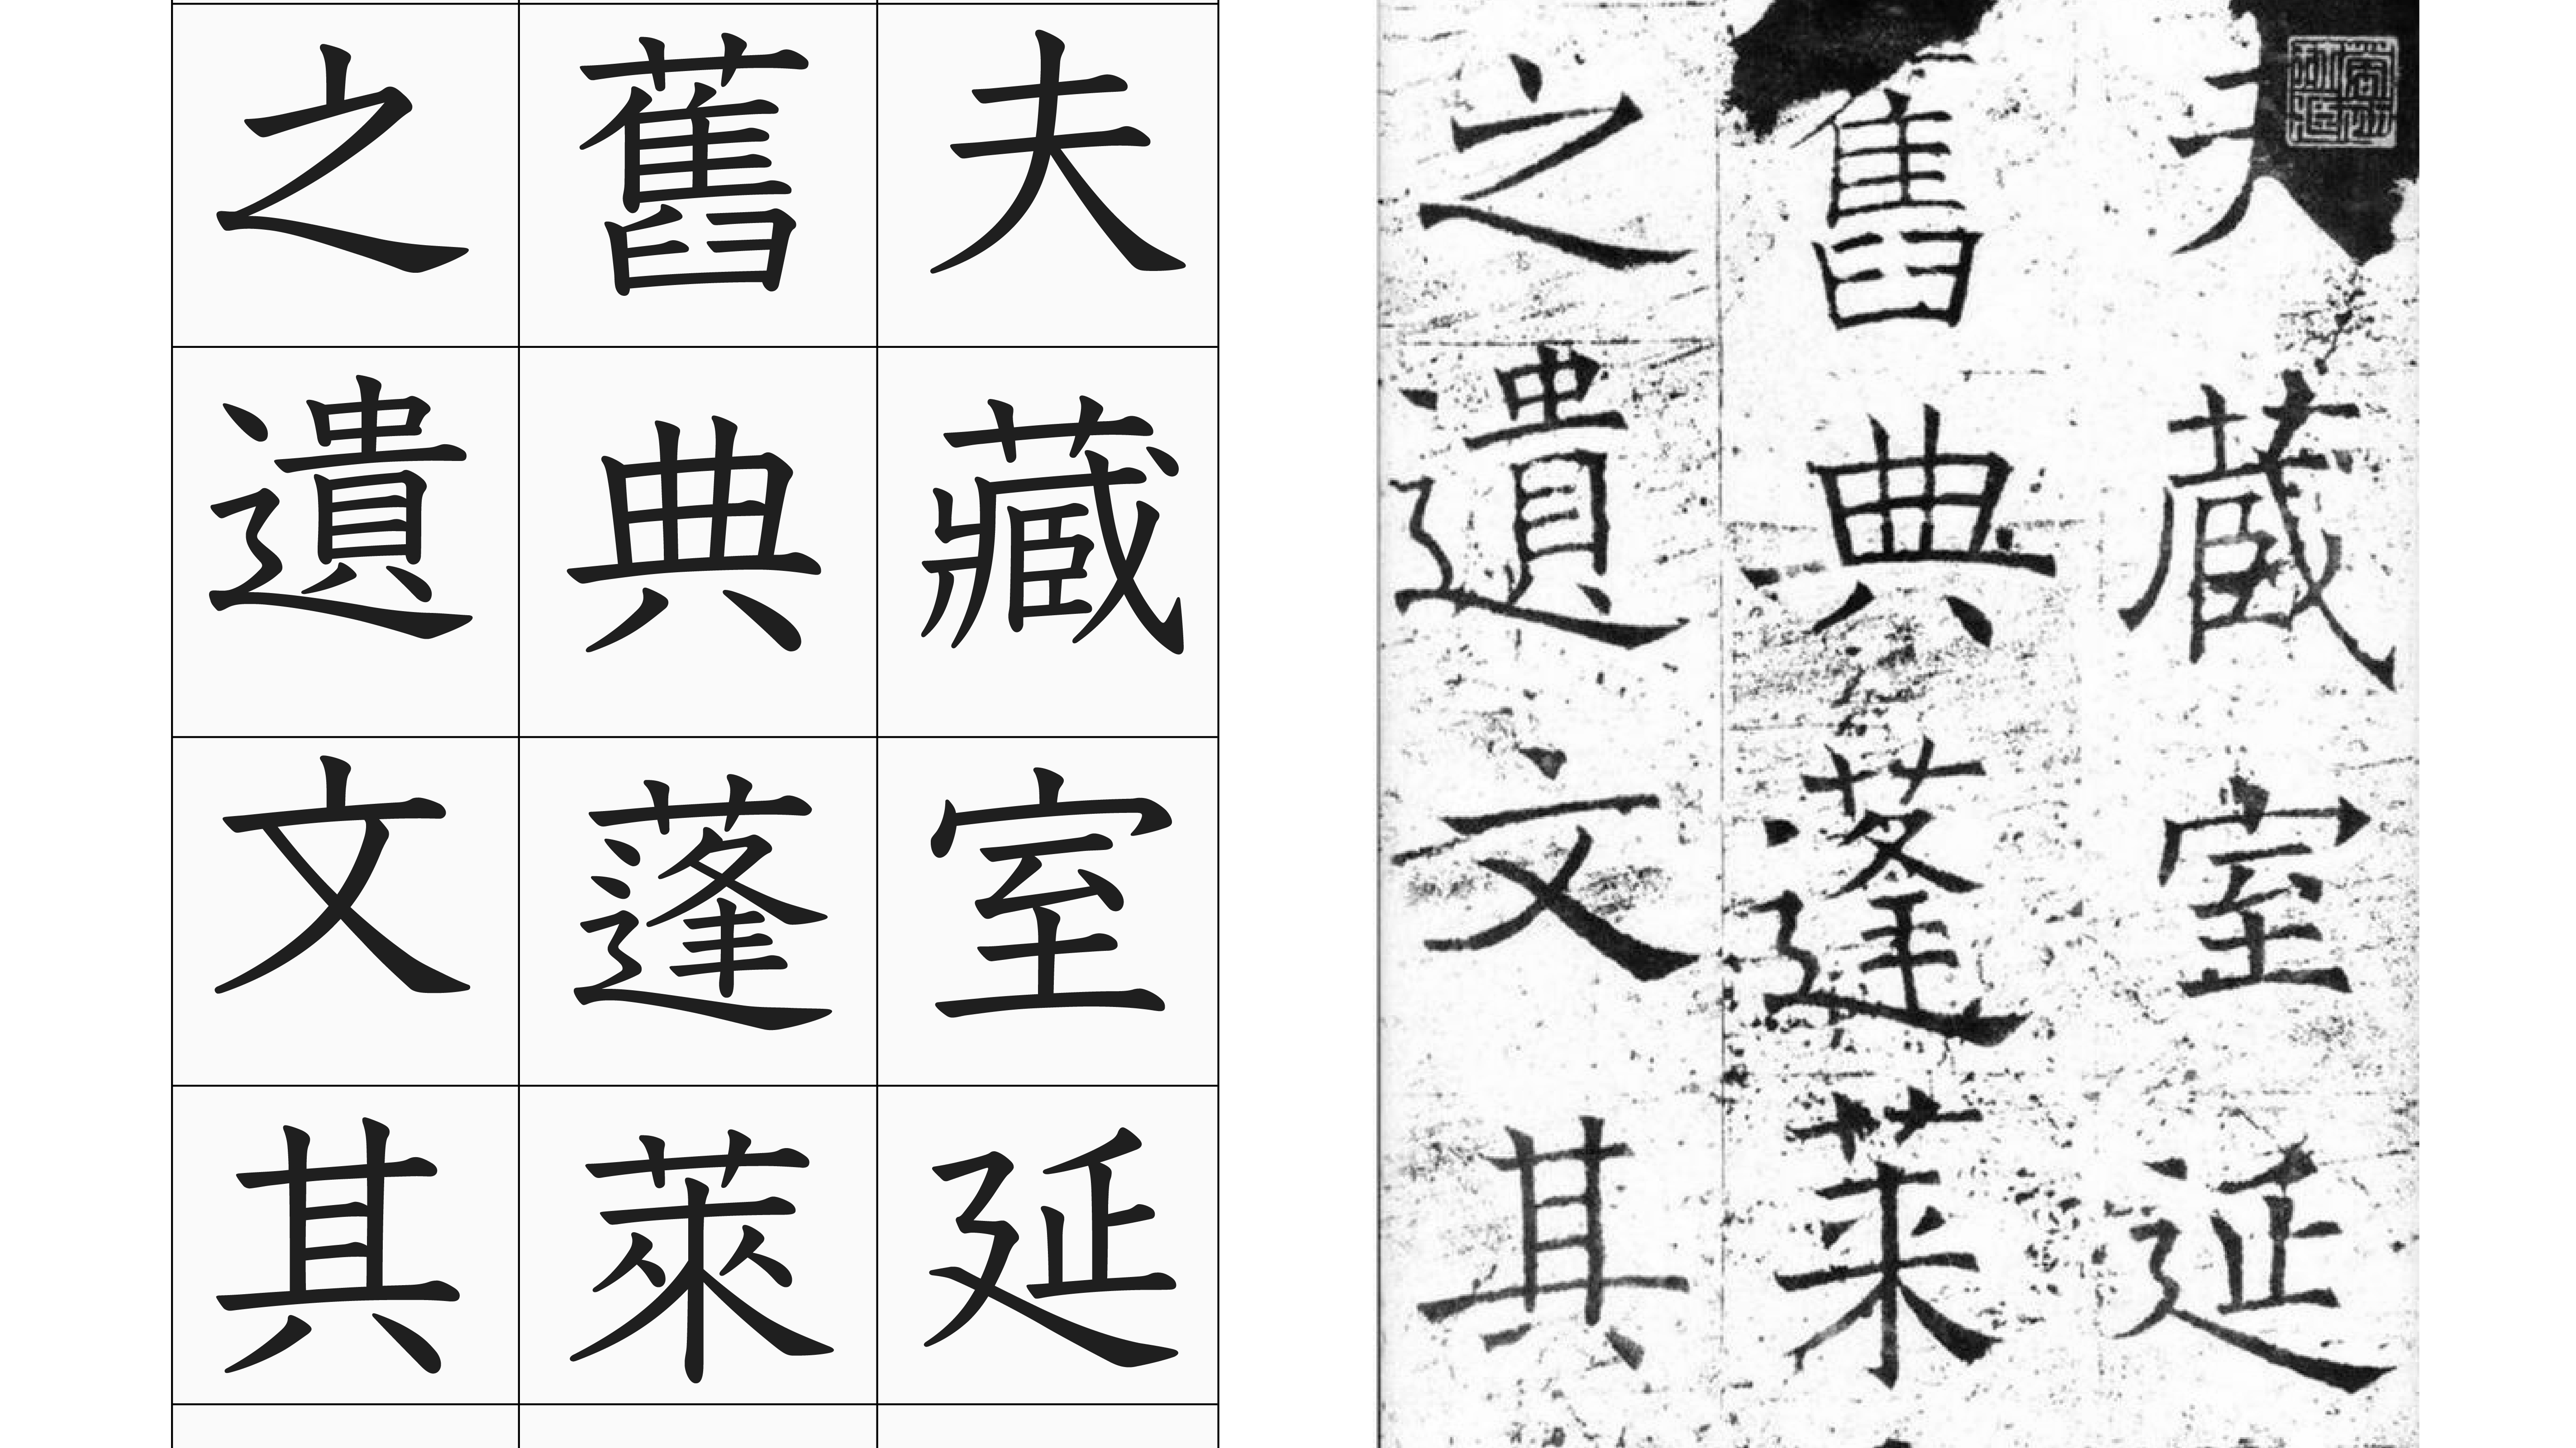 夫藏室延
舊典蓬萊
之遺文其
夫藏室延
舊典蓬萊
之遺文其